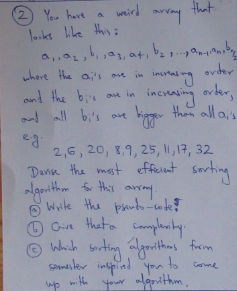 ② You have a weird array that
looks like this:
a₁, a₂, b₁, a₃, a₄, b₂, ..., aₙ₋₁, aₙ, bₙ/₂
where the aᵢ's are in increasing order
and the bᵢ's are in increasing order,
and all bᵢ's are bigger than all aᵢ's
e.g.
2, 6, 20, 8, 9, 25, 11, 17, 32
Devise the most efficient sorting
algorithm for this array.
ⓐ Write the pseudo-code
ⓑ Give theta complexity.
ⓒ Which sorting algorithms from
semester inspired you to come
up with your algorithm.